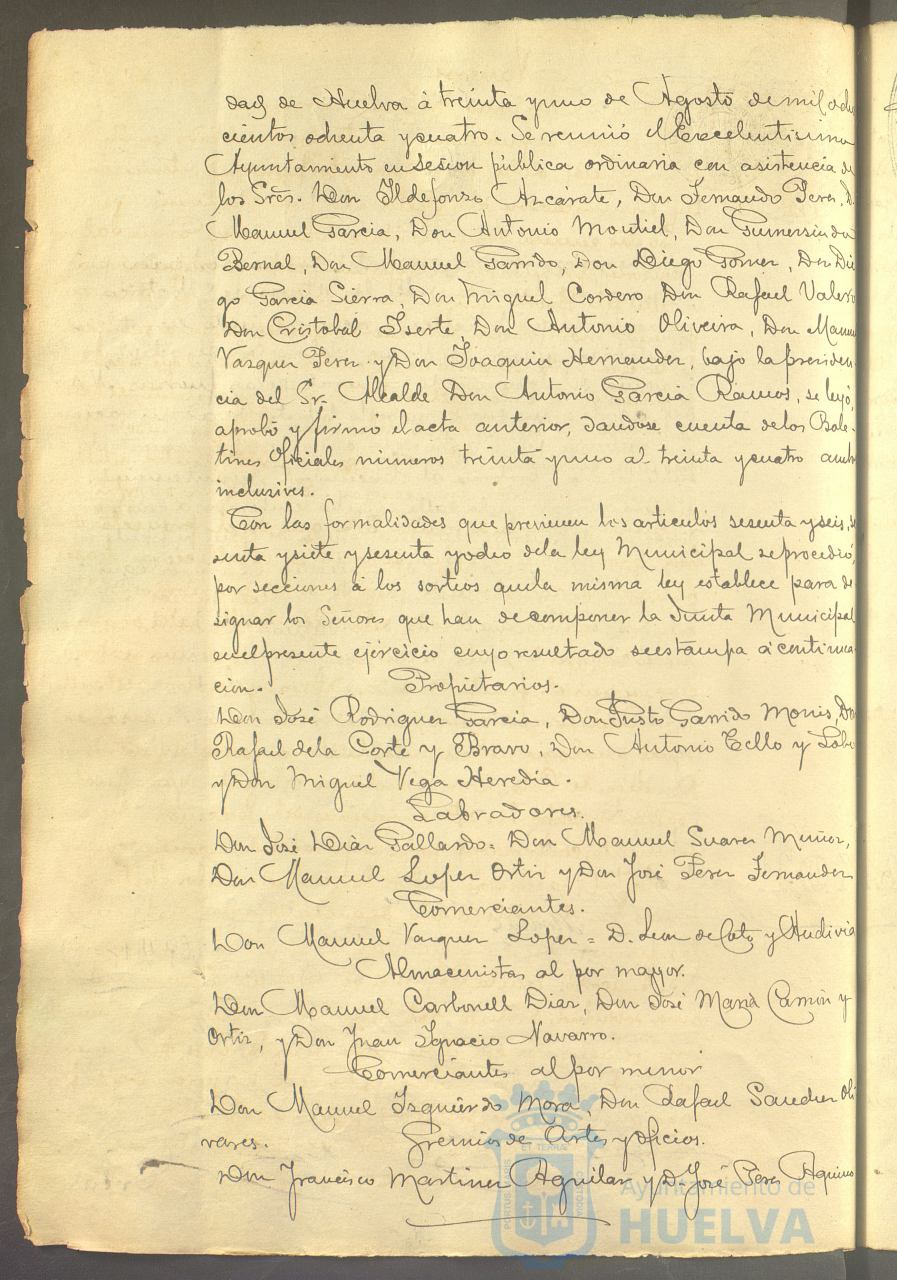 dad de Huelva á treinta y uno de Agosto de mil ocho
cientos ochenta y cuatro. Se reunió el Excelentisimo
Ayuntamiento en sesion pública ordinaria con asistencia de
los Sres. Don Ildefonzo Azcárate, Don Fernando Perez, D.
Manuel Garcia, Don Antonio Montiel, Don Gumersindo
Bernal, Don Manuel Garrido, Don Diego Gomez, Don Die
go Garcia Sierra, Don Miguel Cordero Don Rafael Valero
Don Cristobal Iserte, Don Antonio Oliveira, Don Manuel
Vazquez Perez y Don Joaquin Hernandez, bajo la presiden-
cia del Sr. Alcalde Don Antonio Garcia Ramos, se leyó,
aprobó y firmó el acta anterior, dandose cuenta de los Bole-
tines Oficiales números treinta y uno al treinta y cuatro ambos
inclusives.
Con las formalidades que previenen los articulos sesenta y seis, se
senta y siete y sesenta y ocho de la ley Municipal se procedió,
por secciones á los sorteos que la misma ley establece para de
signar los Señores que han de componer la Junta Municipal
en el presente ejército cuyo resultado se estampa á continua-
cion. Propietarios.
Don José Rodriguez Garcia, Don Justo Garrido Monis, Don
Rafael de la Corte y Bravo, Don Antonio Tello y Lobo
y Don Miguel Vega Heredia.
Labradores.
Don José Diaz Gallardo = Don Manuel Suarez Muñoz,
Don Manuel Lopez Ortiz y Don José Perez Fernandez
Comerciantes.
Don Manuel Vazquez Lopez = D. Leon de Coto y
Almacenistas al por mayor.
Don Manuel Carbonell Diaz, Don José Maria y
Ortiz, y Don Juan Ignacio Navarro.
Comerciantes al por menor
Don Manuel Izquierdo Mora, Don Rafael Sanchez Oli
vares. Gremios de Artes y oficios.
Don Francisco Martinez Aguilar y D. José Perez Aquino
Ayuntamiento de
HUELVA